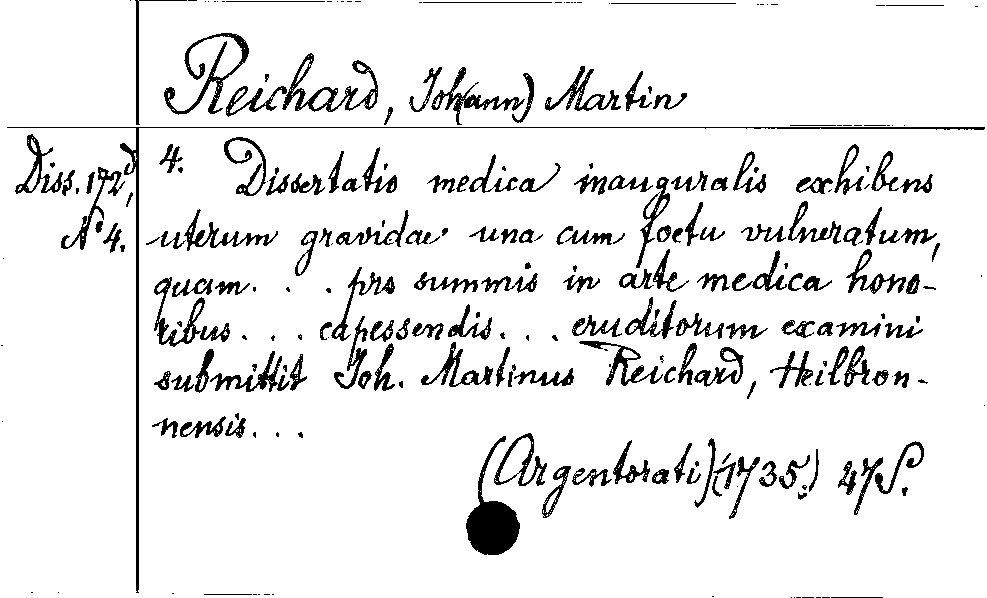 Reichard, Joh(ann) Martin
Diss. 172d,
No 4.
4. Dissertatio medica inauguralis exhibens
uterum gravidae una cum foetu vulneratum,
quam . . . pro summis in arte medica hono-
ribus . . . capessendis . . . eruditorum examini
submittit Joh. Martinus Reichard, Heilbron-
nensis . . .
(Argentorati) (1735.) 27 S.